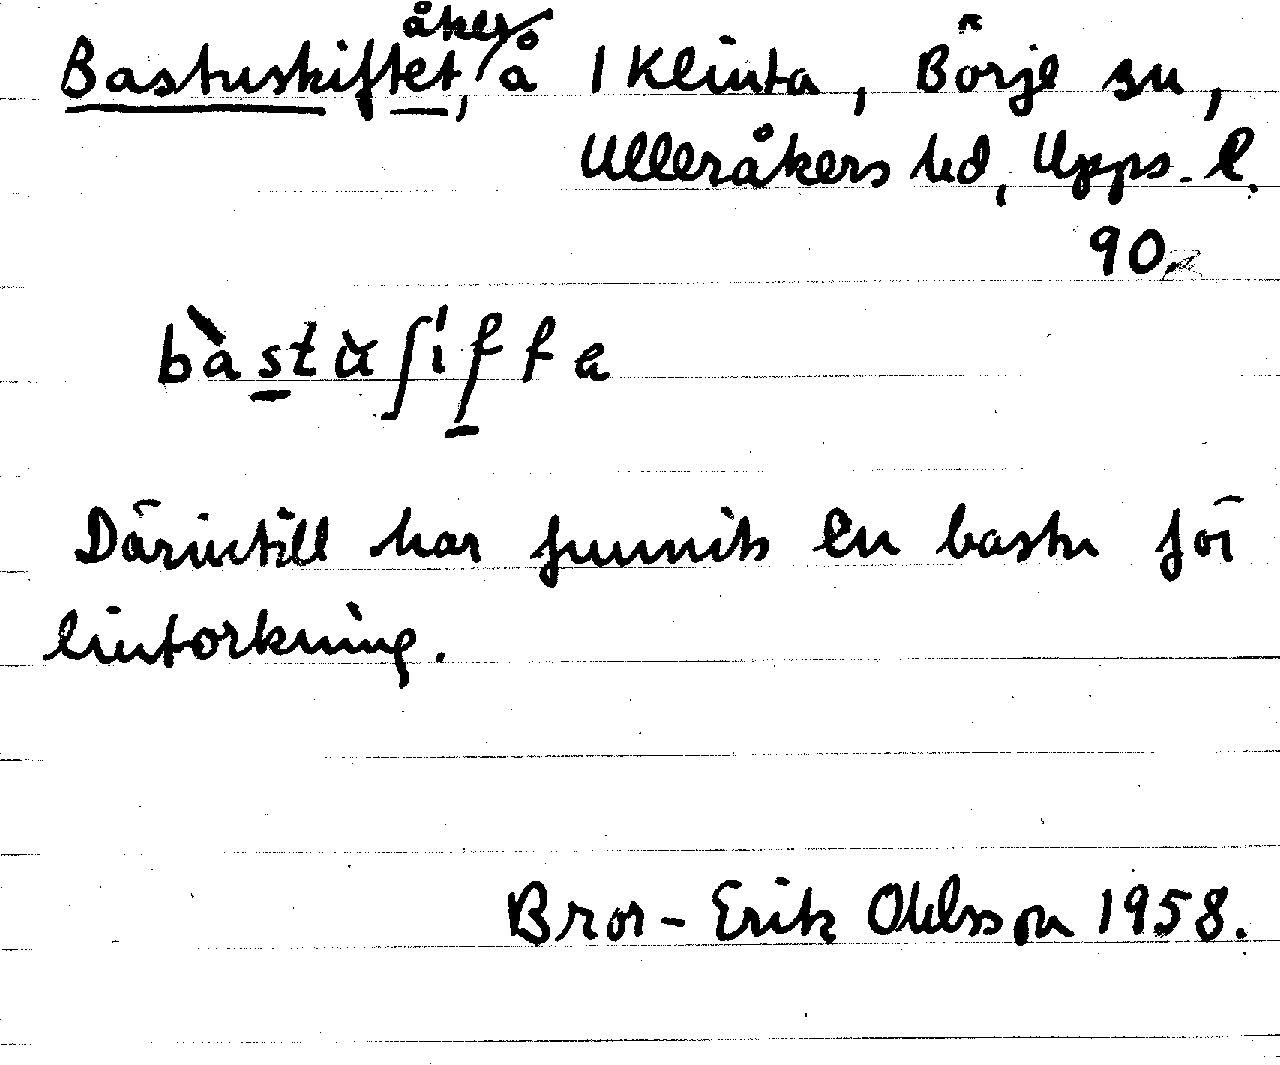 åker/
Bastuskiftet, å 1 Klinta, Börje sn,
Ulleråkers hd, Upps. l.
90
bàstùʃìffe
Därintill har funnits en bastu för
lintorkning.
Bror-Erik Ohlsson 1958.